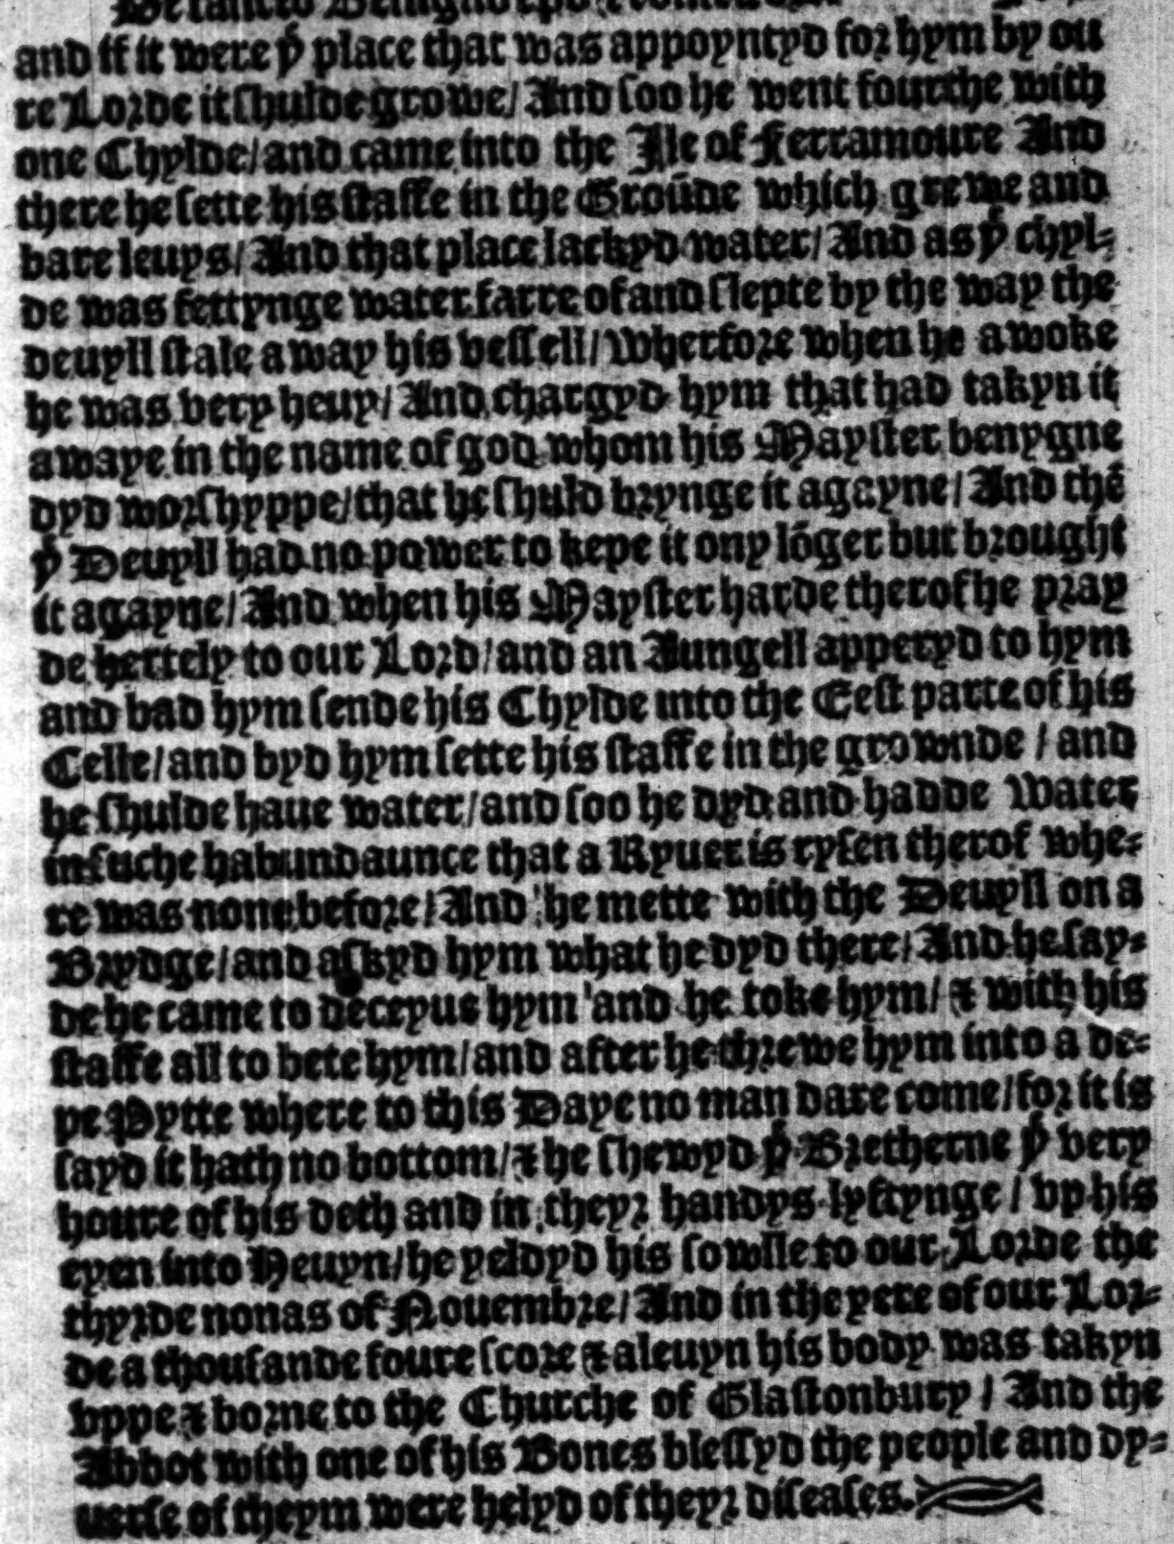 De sancto Benigno epō ⁊ confess
and if it were yͤ place that was appoyntyd for hym by ou
re Lorde it shulde growe/ And soo he went fourthe with
one Chylde/ and came into the Ile of Ferramoure And
there he sette his staffe in the Groūde which grewe and
bare leuys/ And that place lackyd water/ And as yͤ chyl-
de was fettynge water farre of and slepte by the way the
deuyll stale away his vessell/ Wherfore when he awoke
he was very heuy/ And chargyd hym that had takyn it
awaye in the name of god whom his Mayster benygne
dyd worshyppe/ that he shuld brynge it agayne/ And thē
yͤ Deuyll had no power to kepe it ony lōger but brought
it agayne/ And when his Mayster harde therof he pray
de hertely to our Lord/ and an Aungell apperyd to hym
and bad hym sende his Chylde into the Eest parte of his
Celle/ and byd hym sette his staffe in the grownde / and
he shulde haue water/ and soo he dyd and hadde Water
in suche habundaunce that a Ryuer is rysen therof whe-
re was none before/ And he mette with the Deuyll on a
Brydge/ and askyd hym what he dyd there/ And he say-
de he came to deceyue hym and he toke hym/ ⁊ with his
staffe all to bete hym/ and after he threwe hym into a de-
pe Pytte where to this Daye no man dare come/ for it is
sayd it hath no bottom/ ⁊ he shewyd yͤ Bretherne yͤ very
houre of his deth and in theyr handys lyftynge / vp his
eyen into Heuyn/ he yeldyd his sowlle to our Lorde the
thyrde nonas of Nouembre/ And in the yere of our Lor-
de a thousande foure score ⁊ aleuyn his body was takyn
vppe ⁊ borne to the Churche of Glastonbury / And the
Abbot with one of his Bones blessyd the people and dy-
uerse of theym were helyd of theyr diseases.